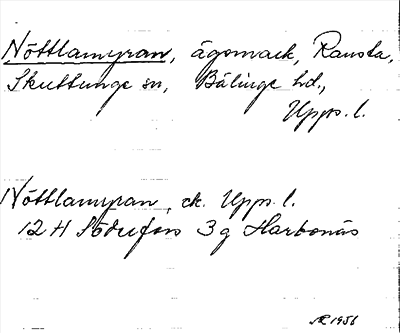 Nöttlamyran, ägomark, Ransta,
Skuttunge sn, Bälinge hd.,
Upps. l.
Nöttlamyran, ek. Upps. l.
12 H Söderfors 3 g Harbonäs
1956